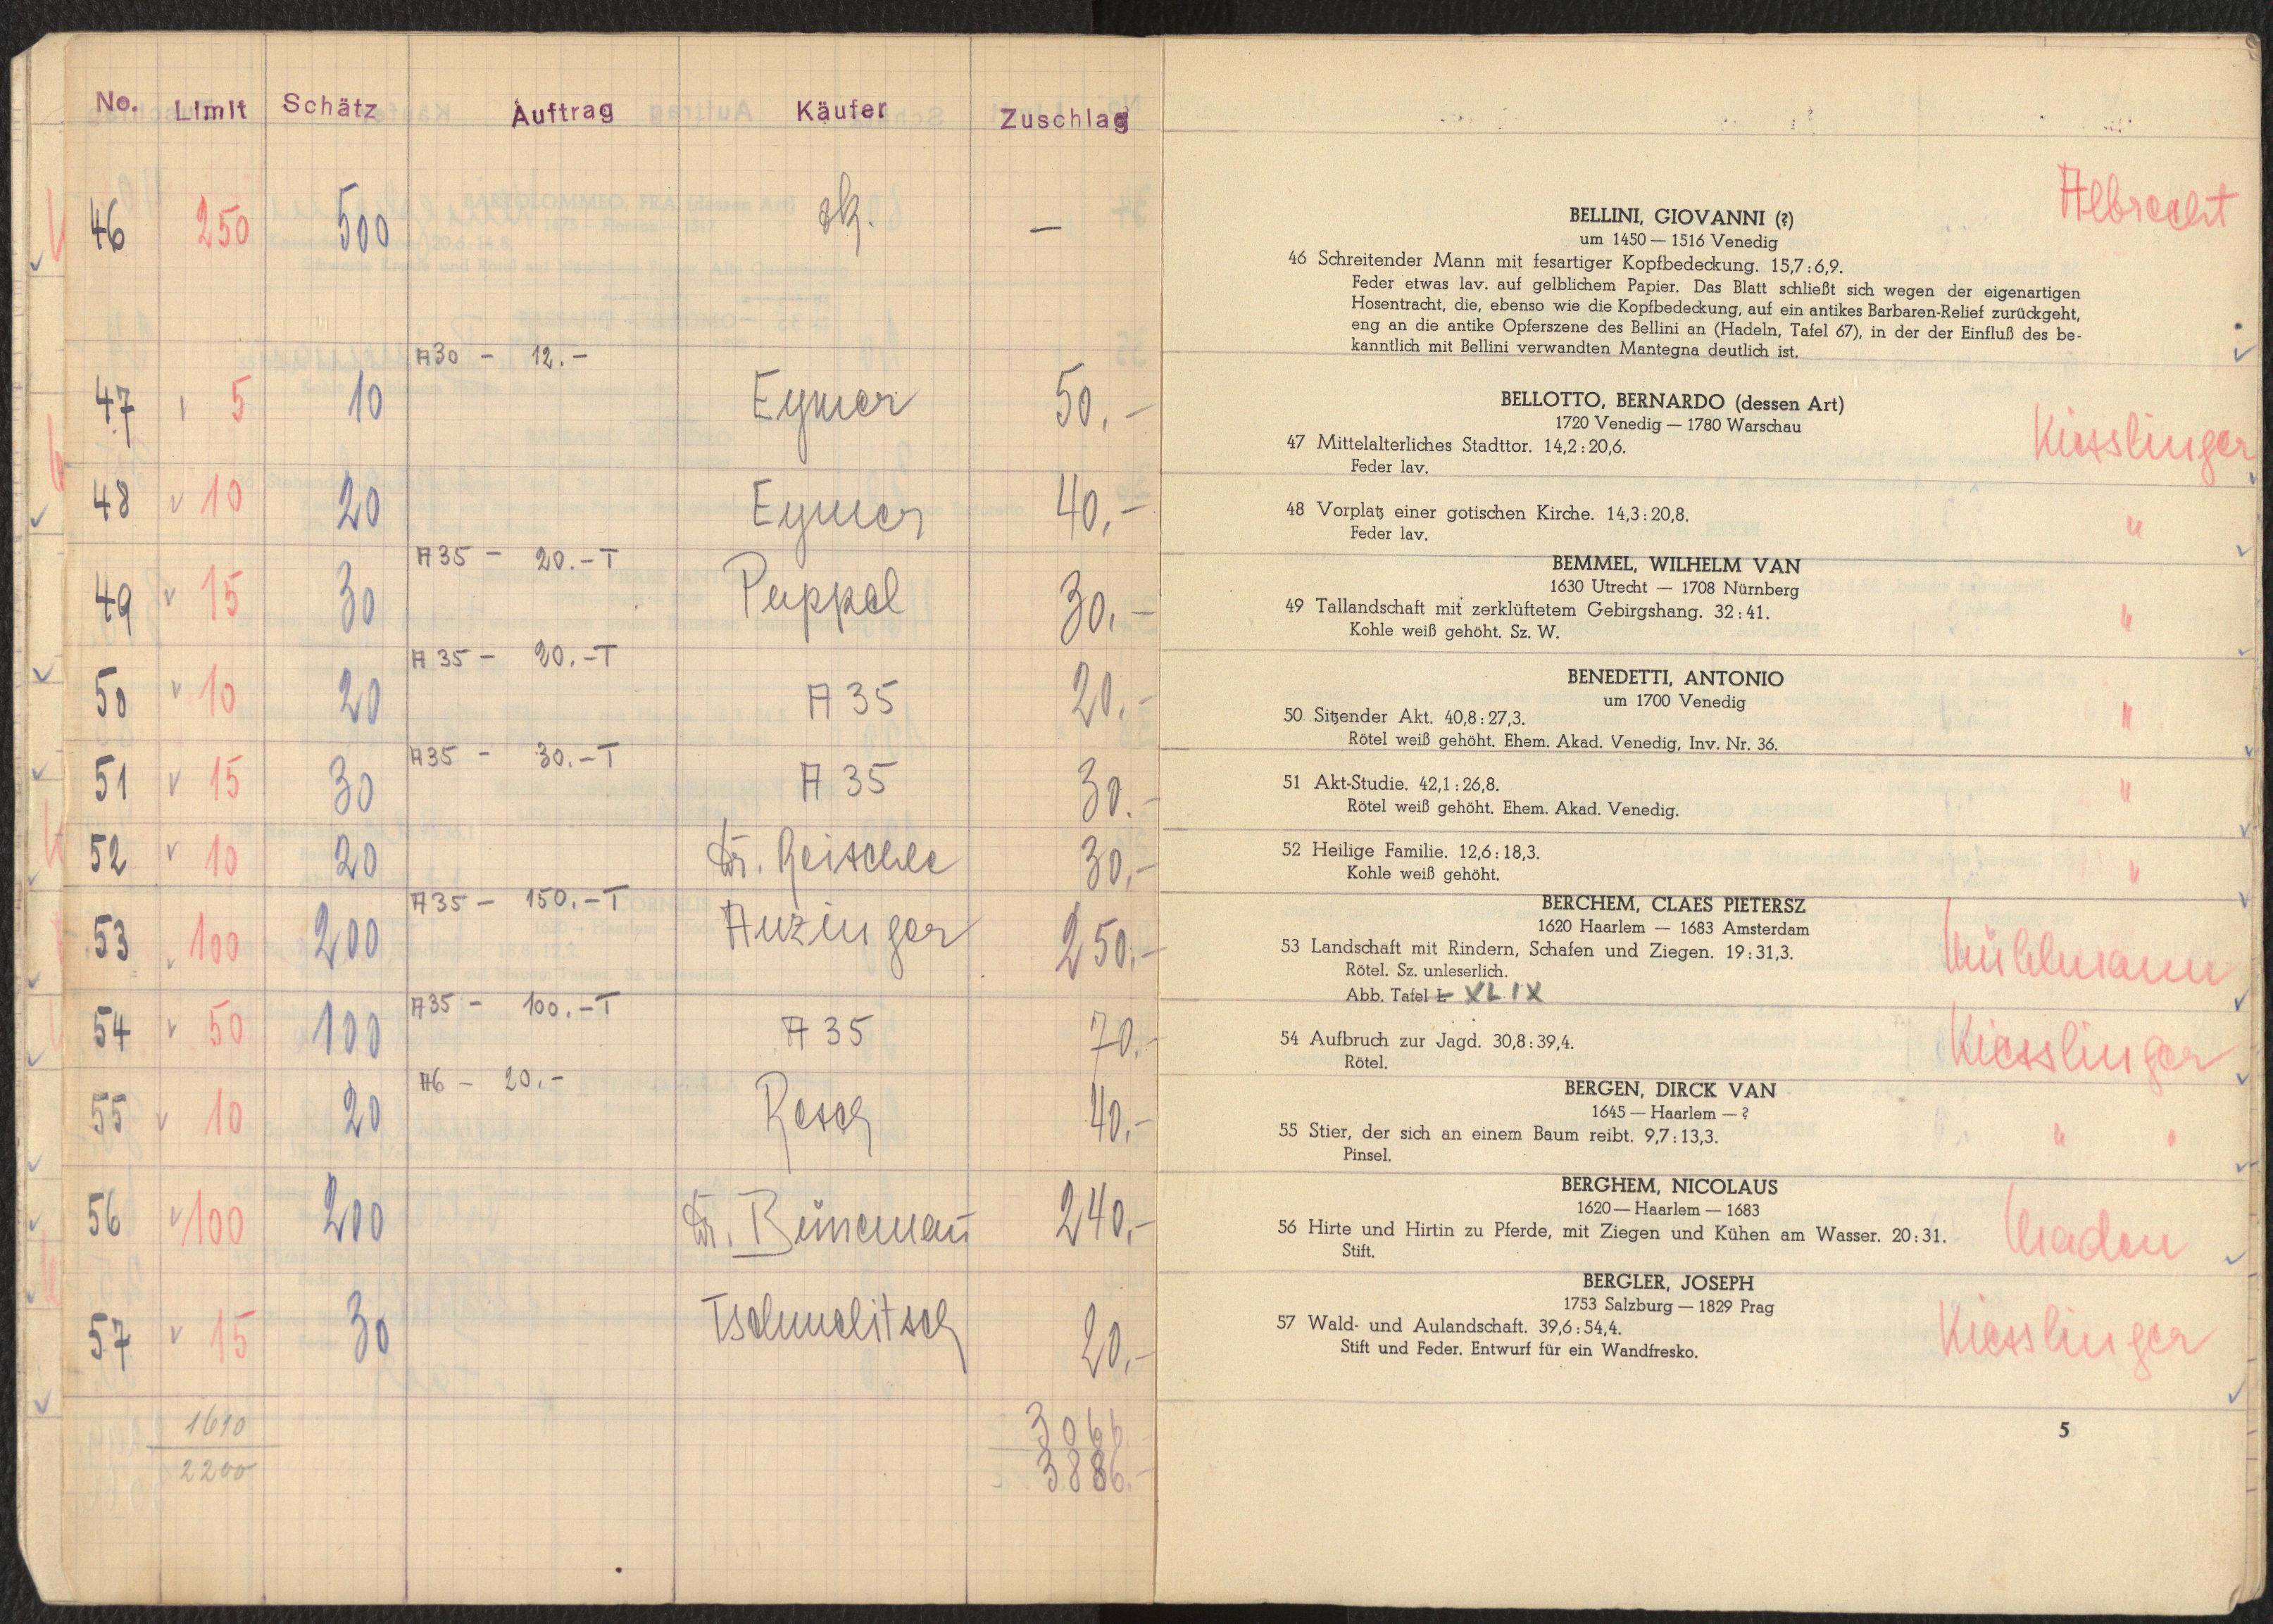 No. Limit Schätz Auftrag Käufer Zuschlag
46 250 500 —
A30 - 12.-
47 5 10 Eymer 50.-
48 10 20 Eymer 40.-
A35 - 20.-T
49 15 30 Puppel 30.-
A35 - 20.-T
50 10 20 A 35 20.-
A35 - 30.-T
51 15 30 A 35 30.-
52 10 20 Dr. Reischle 30.-
A35 - 150.-T
53 100 200 Anzinger 250.-
A35 - 100.-T
54 50 100 A 35 70.-
A6 - 20.-
55 10 20 Resch 40.-
56 100 200 Dr. 240.-
57 15 30 20.-
1610 3066
2200 3886.-
Albrecht
BELLINI, GIOVANNI (?)
um 1450 — 1516 Venedig
46 Schreitender Mann mit fesartiger Kopfbedeckung. 15,7 : 6,9.
Feder etwas lav. auf gelblichem Papier. Das Blatt schließt sich wegen der eigenartigen
Hosentracht, die, ebenso wie die Kopfbedeckung, auf ein antikes Barbaren-Relief zurückgeht,
eng an die antike Opferszene des Bellini an (Hadeln, Tafel 67), in der der Einfluß des be-
kanntlich mit Bellini verwandten Mantegna deutlich ist.
BELLOTTO, BERNARDO (dessen Art)
1720 Venedig — 1780 Warschau
Kiesslinger
47 Mittelalterliches Stadttor. 14,2 : 20,6.
Feder lav.
48 Vorplatz einer gotischen Kirche. 14,3 : 20,8. "
Feder lav.
BEMMEL, WILHELM VAN
1630 Utrecht — 1708 Nürnberg
49 Tallandschaft mit zerklüftetem Gebirgshang. 32 : 41. "
Kohle weiß gehöht. Sz. W.
BENEDETTI, ANTONIO
um 1700 Venedig
50 Sitzender Akt. 40,8 : 27,3. "
Rötel weiß gehöht. Ehem. Akad. Venedig, Inv. Nr. 36.
51 Akt-Studie. 42,1 : 26,8. "
Rötel weiß gehöht. Ehem. Akad. Venedig.
52 Heilige Familie. 12,6 : 18,3. "
Kohle weiß gehöht.
BERCHEM, CLAES PIETERSZ
1620 Haarlem — 1683 Amsterdam
53 Landschaft mit Rindern, Schafen und Ziegen. 19 : 31,3. Mühlmann
Rötel. Sz. unleserlich.
Abb. Tafel L XLIX
54 Aufbruch zur Jagd. 30,8 : 39,4. Kiesslinger
Rötel.
BERGEN, DIRCK VAN
1645 — Haarlem — ?
55 Stier, der sich an einem Baum reibt. 9,7 : 13,3. "
Pinsel.
BERGHEM, NICOLAUS
1620 — Haarlem — 1683
56 Hirte und Hirtin zu Pferde, mit Ziegen und Kühen am Wasser. 20 : 31.
Stift.
BERGLER, JOSEPH
1753 Salzburg — 1829 Prag
57 Wald- und Aulandschaft. 39,6 : 54,4. Kiesslinger
Stift und Feder. Entwurf für ein Wandfresko.
5